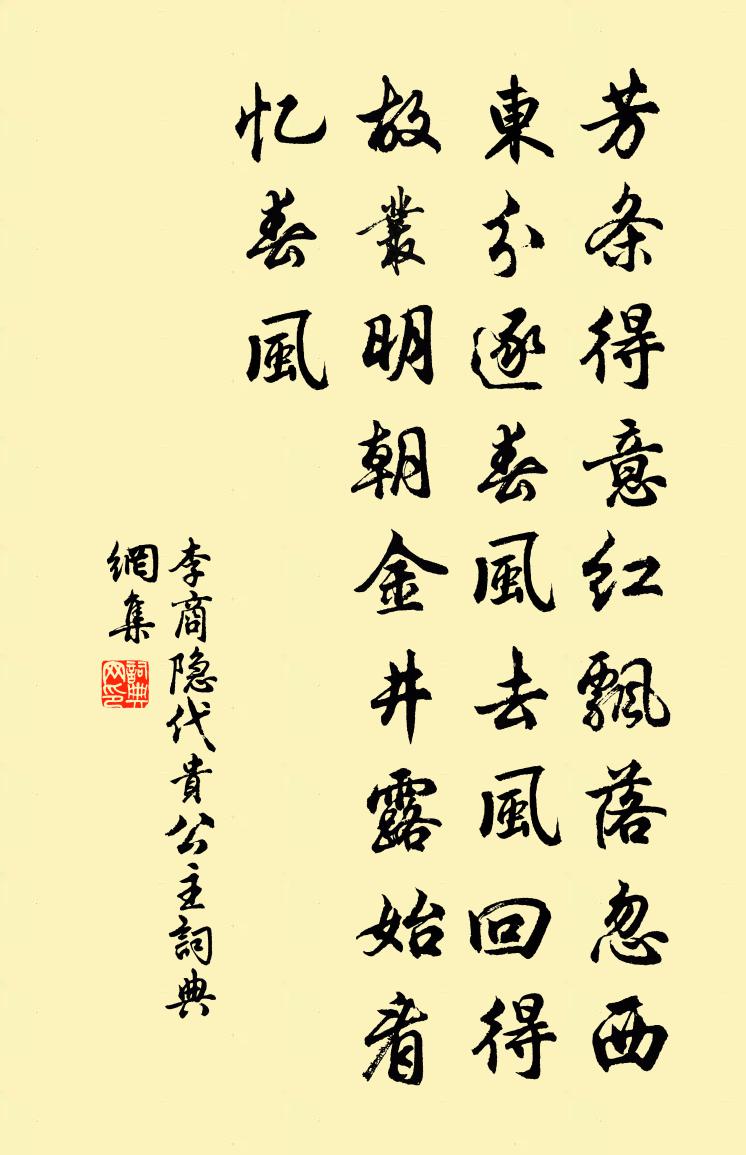 芳条得意红飄落忽西
東分逐春風去風回得
故叢明朝金井露始看
忆春風
李商隐代貴公主詞典
網集
詞典
网印